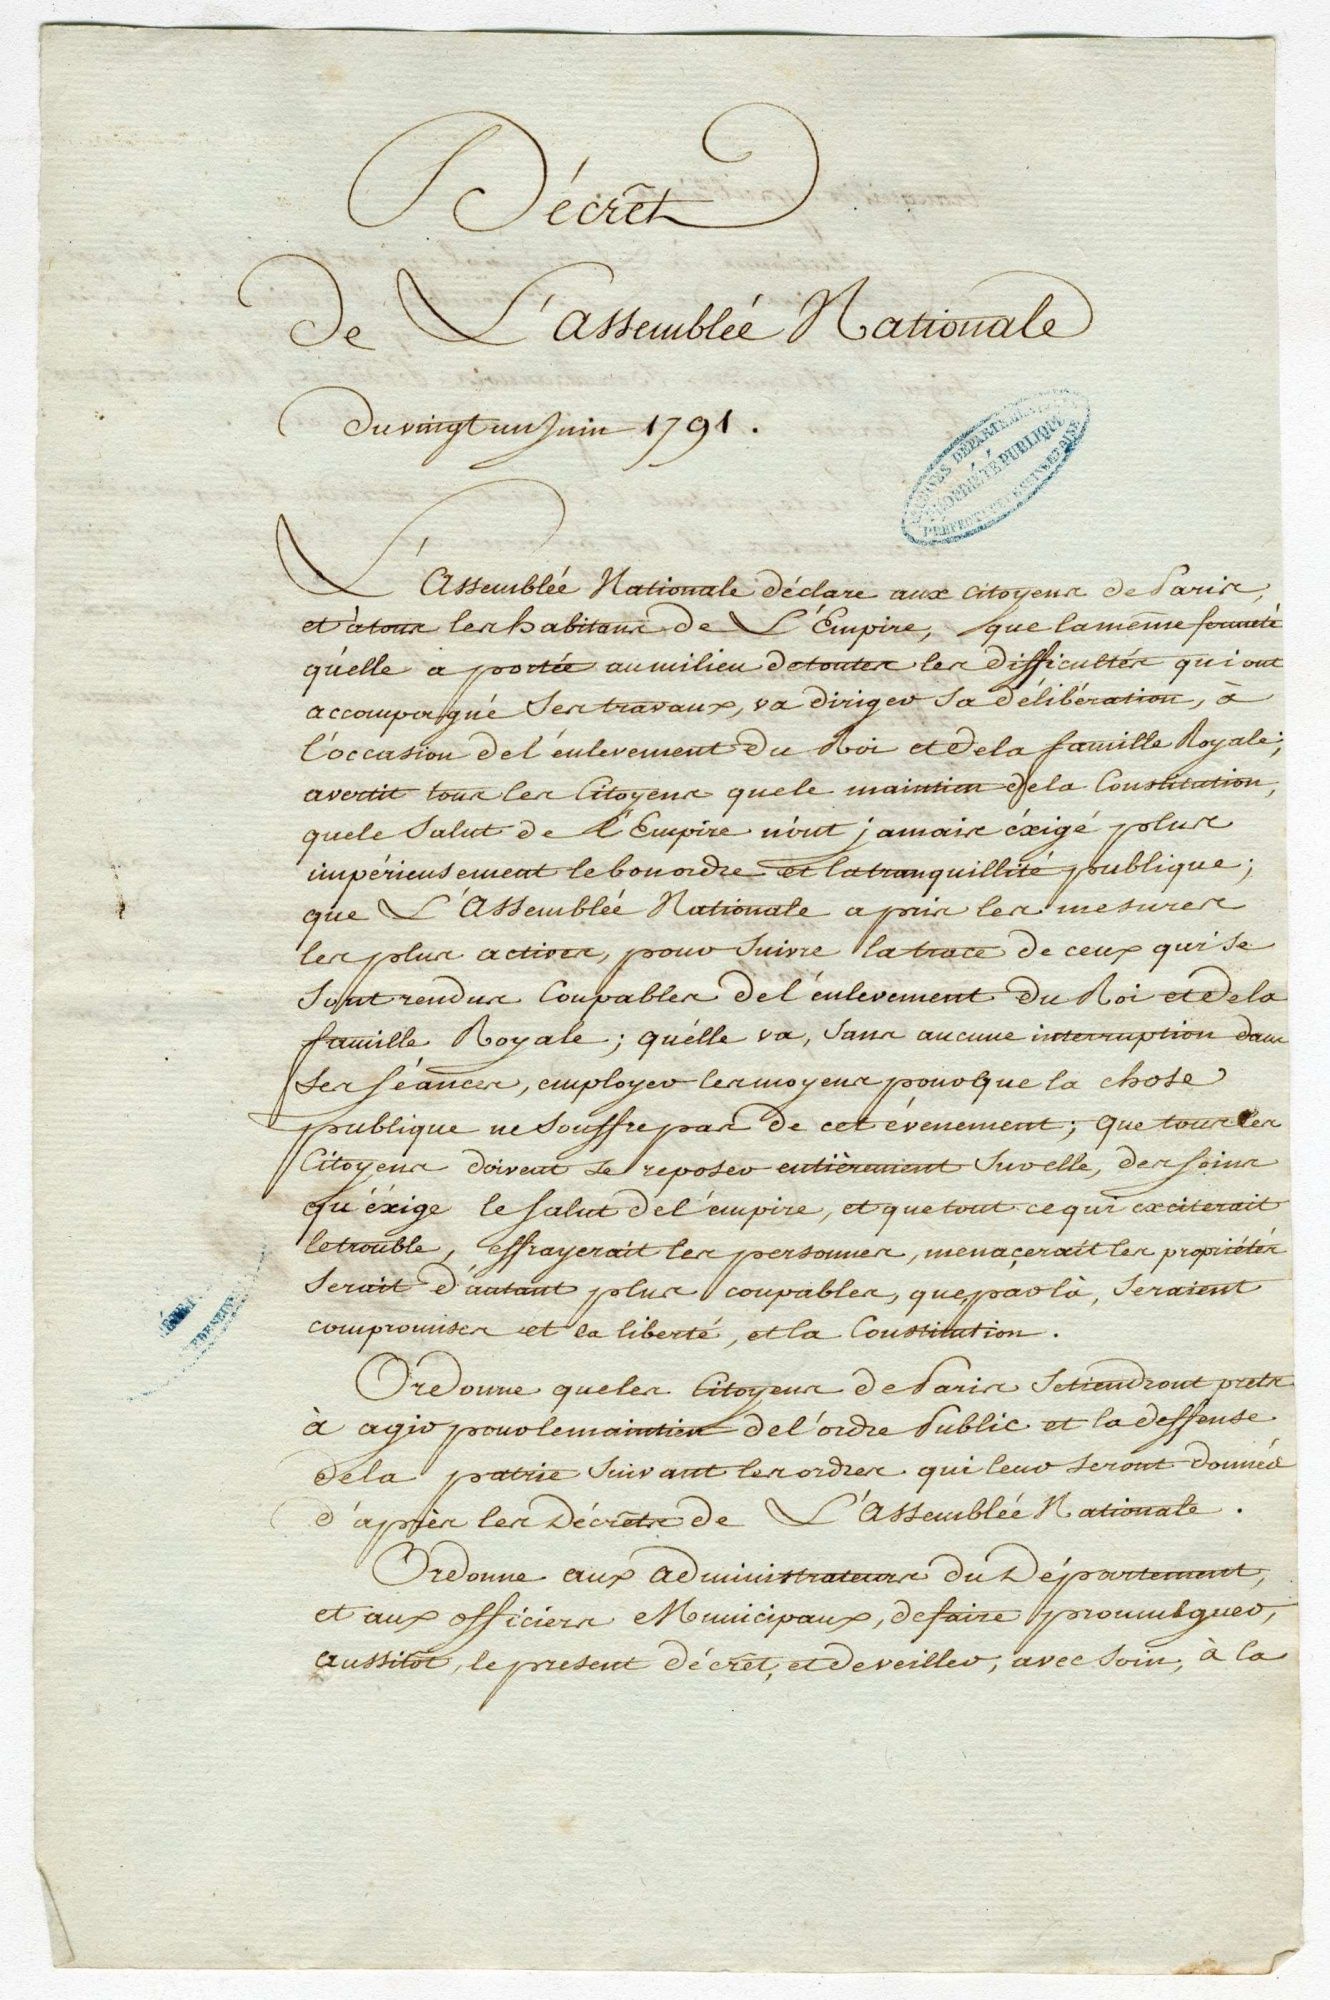 Décrêt
de L'assemblée Nationale
du vingt un Juin 1791.
ARCHIVES DÉPARTEMENTALES
PROPRIÉTÉ PUBLIQUE
PRÉFECTURE DE SEINE ET OISE
L'Assemblée Nationale déclare aux citoyens de Paris,
et à tous les habitans de L'Empire, que la même fermeté
qu'elle a portée au milieu de toutes les difficultés qui ont
accompagné ses travaux, va diriger sa délibération, à
l'occasion de l'énlevement du Roi et de la famille Royale;
avertit tous les Citoyens que le maintien de la Constitution,
que le Salut de l'Empire n'ont jamais éxigé plus
impérieusement le bon ordre et la tranquillité publique;
que L'Assemblée Nationale a pris les mesures
les plus actives, pour suivre la trace de ceux qui se
sont rendus Coupables de l'énlevement du Roi et de la
famille Royale; qu'élle va, sans aucune interruption dans
ses séances, employer les moyens pour que la chose
publique ne souffre pas de cet évenement; que tous les
Citoyens doivent se reposer entièrement sur elle, des soins
qu'éxige le salut de l'empire, et que tout ce qui exciterait
le trouble, effrayerait les personnes, menaçerait les propriétés
serait d'autant plus coupables, que, par là, seraient
compromises et la liberté, et la Constitution.
Ordonne que les Citoyens de Paris se tiendront prets
à agir pour le maintien de l'ordre Public et la deffense
de la patrie suivant les ordres qui leur seront donnés
d'après les Décrêts de L'Assemblée Nationale.
Ordonne aux administrateurs du Département,
et aux officiers Municipaux, de faire promulguer,
aussitôt, le présent décrêt, et de veiller, avec soin, à la